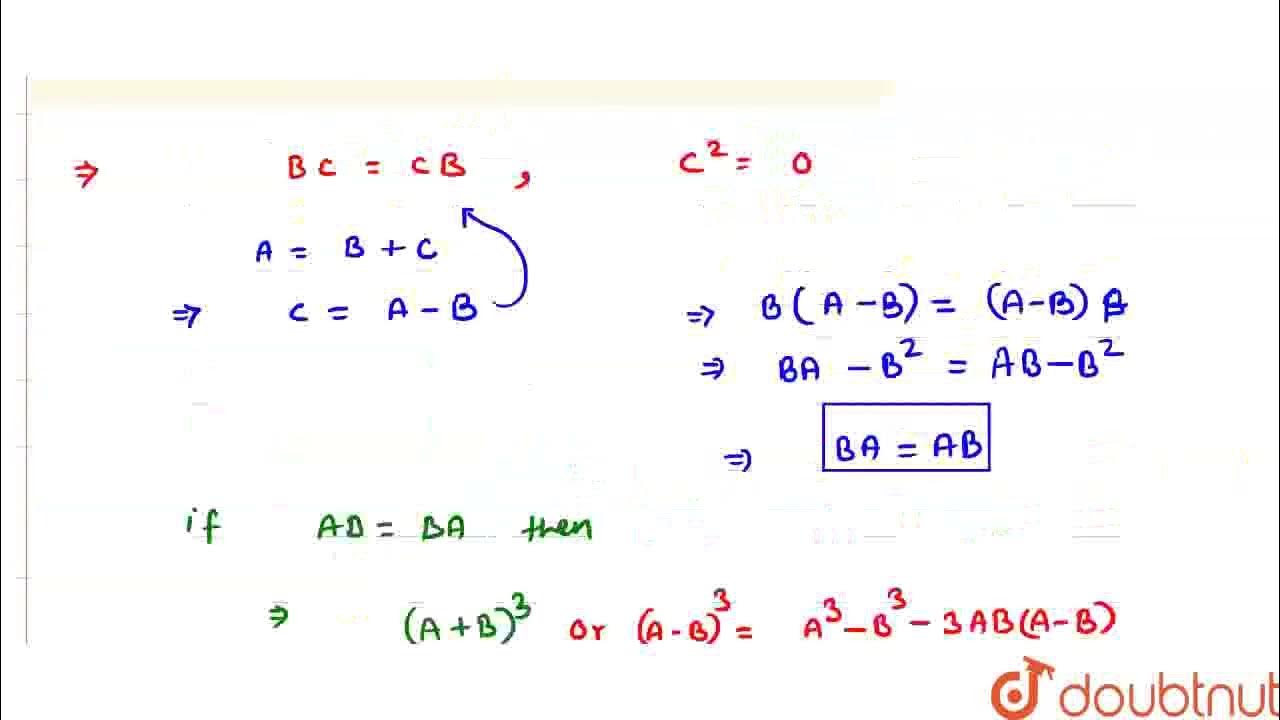 ⇒ BC = CB , C² = 0
A = B + C
⇒ C = A - B ⇒ B(A-B) = (A-B)B
⇒ BA - B² = AB - B²
⇒ BA = AB
if AB = BA then
⇒ (A+B)³ or (A-B)³ = A³ - B³ - 3AB(A-B)
doubtnut